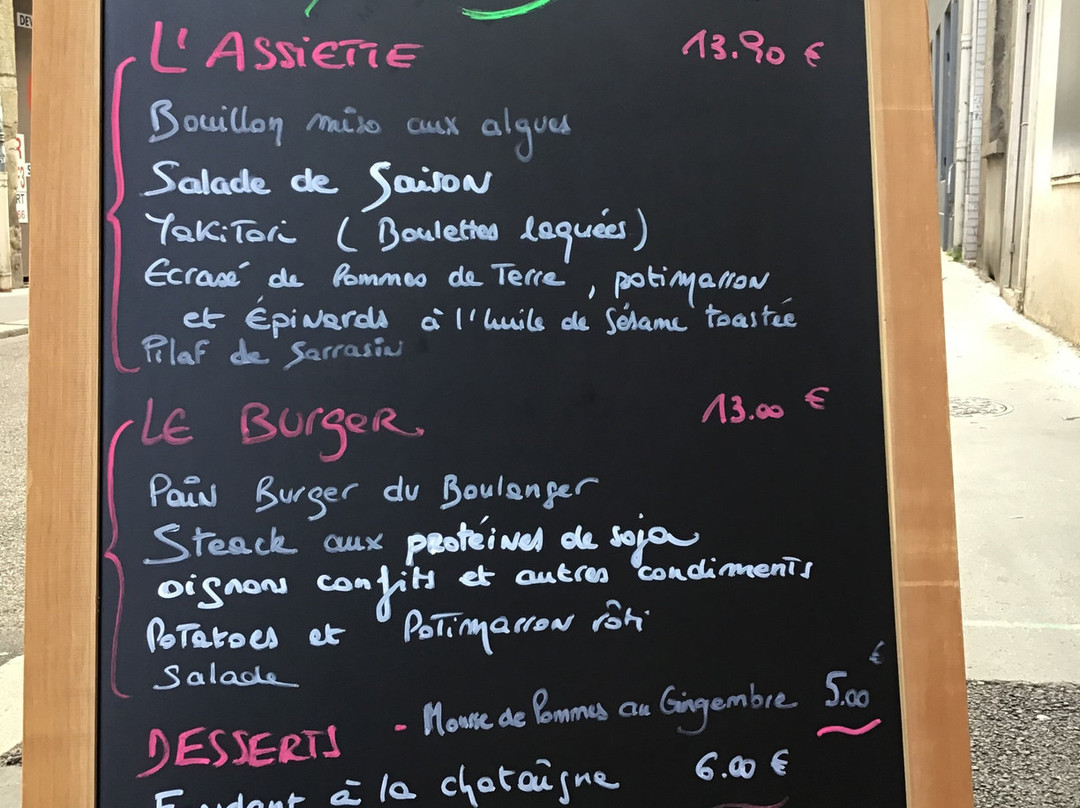 L'ASSIETTE 13.90 €
Bouillon miso aux algues
Salade de Saison
Yakitori (Boulettes laquées)
Ecrasé de Pommes de Terre, potimarron
et Épinards à l'huile de Sésame toastée
Pilaf de Sarrasin
LE BURGER 13.00 €
Pain Burger du Boulanger
Steack aux protéines de soja
oignons confits et autres condiments
Potatoes et Potimarron rôti
Salade
DESSERTS - Mousse de Pommes au Gingembre 5.00 €
Fondant à la chataîgne 6.00 €